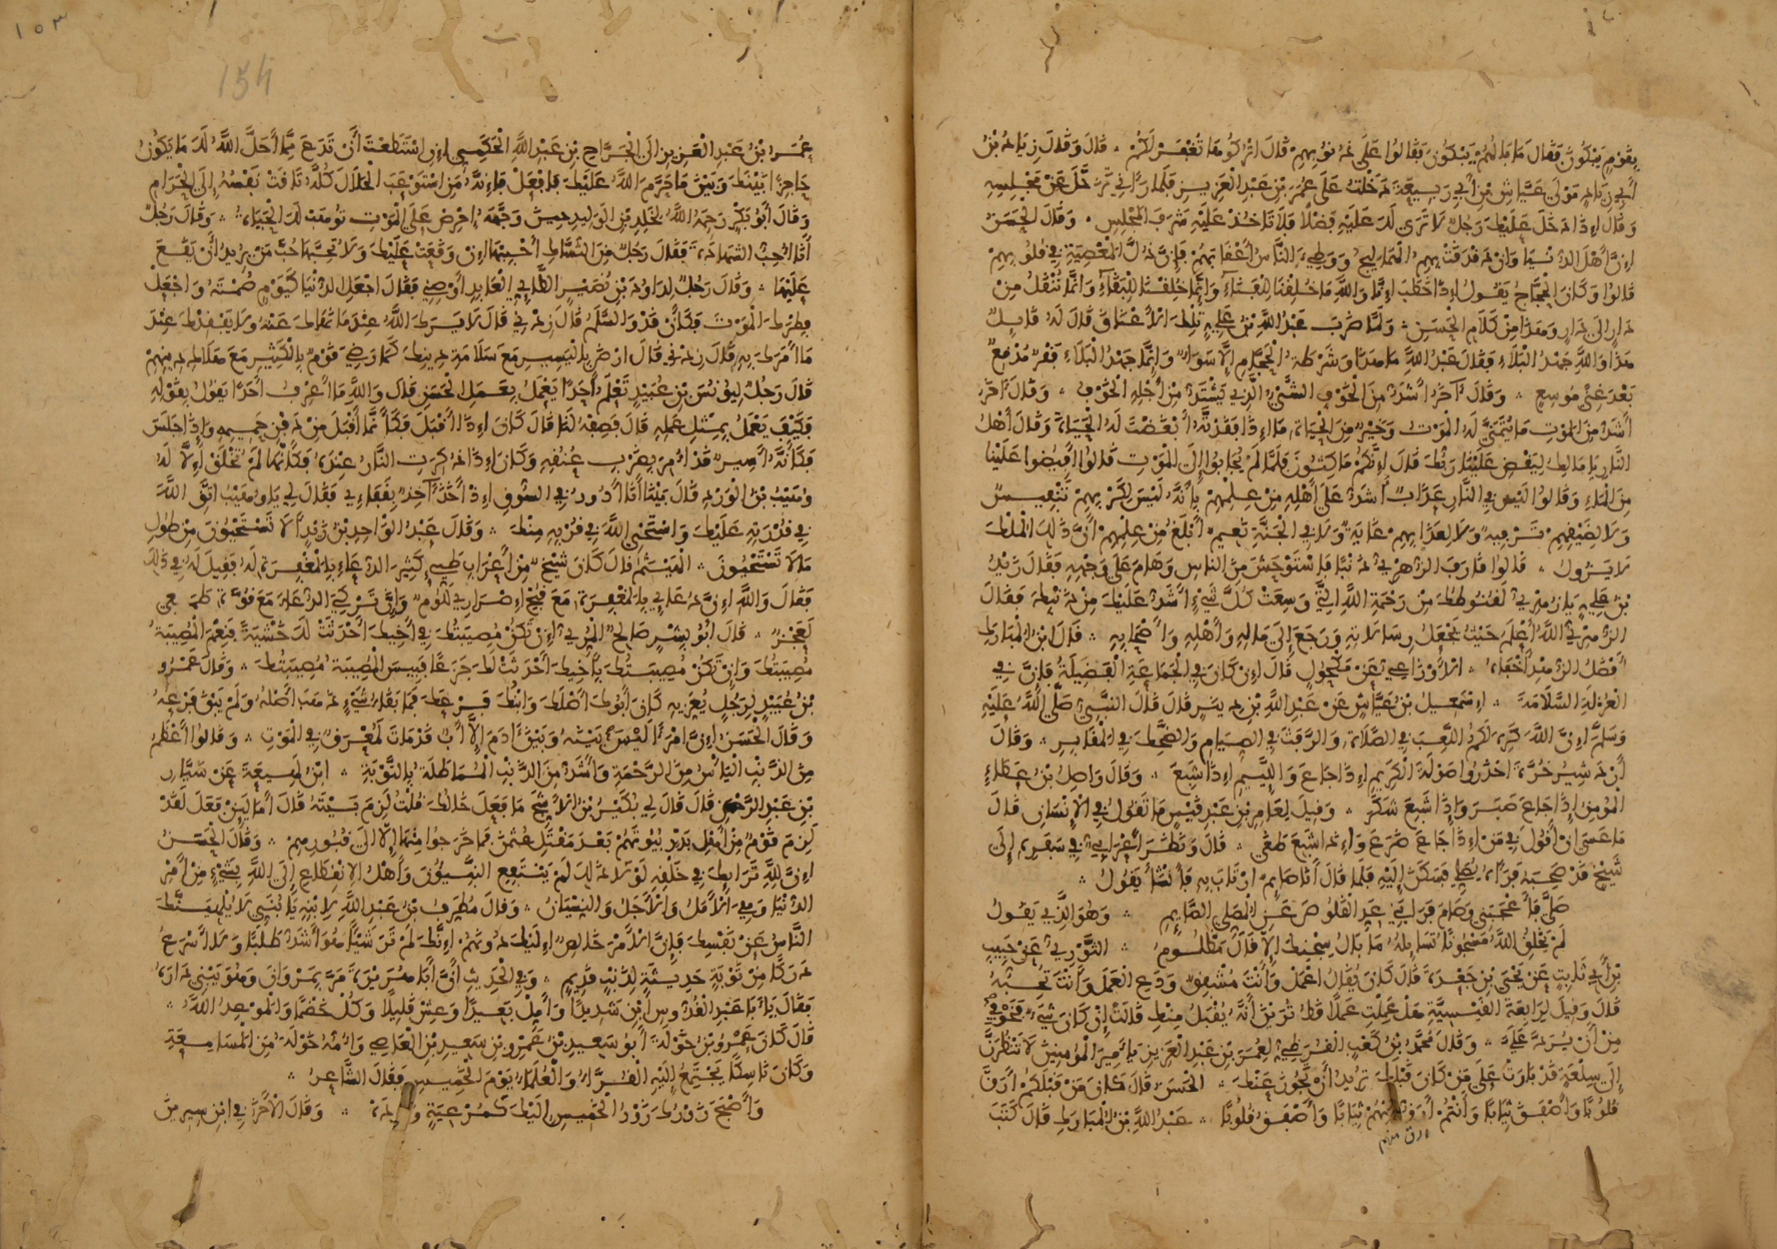 بِقَوْمٍ يَبْكُونَ فَقَالَ مَا بَالُهُمْ يَبْكُونَ فَقَالُوا عَلَى ذُنُوبِهِمْ قَالَ اتْرُكُوهَا تُغْفَرْ لَكُمْ ۞ قَالَ وَقَالَ زِيَادُ بْنُ
أَبِي زِيَادٍ مَوْلَى عَيَّاشِ بْنِ أَبِي رَبِيعَةَ دَخَلْتُ عَلَى عُمَرَ بْنِ عَبْدِ الْعَزِيزِ فَلَمَّا رَآنِي تَزَحَّلَ عَنْ مَجْلِسِهِ
وَقَالَ إِذَا دَخَلَ عَلَيْكَ رَجُلٌ لَا تَرَى لَكَ عَلَيْهِ فَضْلًا فَلَا تَأْخُذْ عَلَيْهِ شَرَفَ الْمَجْلِسِ ۞ وَقَالَ الْحَسَنُ
إِنَّ أَهْلَ الدُّنْيَا وَإِنْ دَقْدَقَتْ بِهِمُ الْهَمَالِيجُ وَوَطِئَ النَّاسُ أَعْقَابَهُمْ فَإِنَّ ذُلَّ الْمَعْصِيَةِ فِي قُلُوبِهِمْ
قَالُوا وَكَانَ الْحَجَّاجُ يَقُولُ إِذَا خَطَبَ إِنَّا وَاللَّهِ مَا خُلِقْنَا لِلْفَنَاءِ وَإِنَّمَا خُلِقْنَا لِلْبَقَاءِ وَإِنَّمَا نُنْقَلُ مِنْ
دَارٍ إِلَى دَارٍ وَهَذَا مِنْ كَلَامِ الْحَسَنِ ۞ وَلَمَّا ضَرَبَ عَبْدُ اللَّهِ بْنُ عَلِيٍّ تِلْكَ الْأَعْنَاقَ قَالَ لَهُ قَائِلٌ
هَذَا وَاللَّهِ جَهْدُ الْبَلَاءِ فَقَالَ عَبْدُ اللَّهِ مَا هَذَا وَشَرْطَةُ الْحَجَّامِ إِلَّا سَوَاءٌ وَإِنَّمَا جَهْدُ الْبَلَاءِ فَقْرٌ مُدْقِعٌ
بَعْدَ غِنًى مُوسِعٍ ۞ وَقَالَ آخَرُ أَشَدُّ مِنَ الْخَوْفِ الشَّيْءُ الَّذِي يَشْتَدُّ مِنْ أَجْلِهِ الْخَوْفُ ۞ وَقَالَ آخَرُ
أَشَدُّ مِنَ الْمَوْتِ مَا يُتَمَنَّى لَهُ الْمَوْتُ وَخَيْرٌ مِنَ الْحَيَاةِ مَا إِذَا فَقَدْتَهُ أَبْغَضْتَ لَهُ الْحَيَاةَ وَقَالَ أَهْلُ
النَّارِ يَا مَالِكُ لِيَقْضِ عَلَيْنَا رَبُّكَ قَالَ إِنَّكُمْ مَاكِثُونَ فَلَمَّا لَمْ يُجَابُوا إِلَى الْمَوْتِ قَالُوا أَفِيضُوا عَلَيْنَا
مِنَ الْمَاءِ وَقَالُوا لَيْسَ فِي النَّارِ عَذَابٌ أَشَدُّ عَلَى أَهْلِهِ مِنْ عِلْمِهِمْ بِأَنَّهُ لَيْسَ لِكَرْبِهِمْ تَنْفِيسٌ
وَلَا لِضِيقِهِمْ تَرْفِيهٌ وَلَا لِعَذَابِهِمْ غَايَةٌ وَلَا فِي الْجَنَّةِ نَعِيمٌ أَبْلَغُ مِنْ عِلْمِهِمْ أَنَّ ذَلِكَ الْمُلْكَ
لَا يَزُولُ ۞ قَالُوا قَارَفَ الزُّهْرِيُّ ذَنْبًا فَاسْتَوْحَشَ مِنَ النَّاسِ وَهَامَ عَلَى وَجْهِهِ فَقَالَ زَيْدُ
بْنُ عَلِيٍّ يَا زُهْرِيُّ لَقُنُوطُكَ مِنْ رَحْمَةِ اللَّهِ الَّتِي وَسِعَتْ كُلَّ شَيْءٍ أَشَدُّ عَلَيْكَ مِنْ ذَنْبِكَ فَقَالَ
الزُّهْرِيُّ اللَّهُ أَعْلَمُ حَيْثُ يَجْعَلُ رِسَالَاتِهِ وَرَجَعَ إِلَى مَالِهِ وَأَهْلِهِ وَأَصْحَابِهِ ۞ قَالَ ابْنُ الْمُبَارَكِ
أَفْضَلُ الزُّهْدِ أَخْفَاهُ ۞ الْأَوْزَاعِيُّ عَنْ مَكْحُولٍ قَالَ إِنْ كَانَ فِي الْجَمَاعَةِ الْفَضِيلَةُ فَإِنَّ فِي
الْعُزْلَةِ السَّلَامَةَ ۞ إِسْمَعِيلُ بْنُ عَيَّاشٍ عَنْ عَبْدِ اللَّهِ بْنِ دِينَارٍ قَالَ قَالَ النَّبِيُّ صَلَّى اللَّهُ عَلَيْهِ
وَسَلَّمَ إِنَّ اللَّهَ كَرِهَ لَكُمُ الْعَبَثَ فِي الصَّلَاةِ وَالرَّفَثَ فِي الصِّيَامِ وَالضَّحِكَ فِي الْمَقَابِرِ ۞ وَقَالَ
أَرْدَشِيرُ خُرَّةَ احْذَرُوا صَوْلَةَ الْكَرِيمِ إِذَا جَاعَ وَاللَّئِيمِ إِذَا شَبِعَ ۞ وَقَالَ وَاصِلُ بْنُ عَطَاءٍ
الْمُؤْمِنُ إِذَا جَاعَ صَبَرَ وَإِذَا شَبِعَ شَكَرَ ۞ وَقِيلَ لِعَامِرِ بْنِ عَبْدِ قَيْسٍ مَا تَقُولُ فِي الْإِنْسَانِ قَالَ
مَا عَسَى أَنْ أَقُولَ فِي مَنْ إِذَا جَاعَ ضَرَعَ وَإِذَا شَبِعَ طَغَى ۞ قَالَ وَنَظَرَ أَعْرَابِيٌّ فِي سَفَرِهِ إِلَى
شَيْخٍ قَدْ صَحِبَهُ فَرَآهُ يُصَلِّي فَسَكَنَ إِلَيْهِ فَلَمَّا قَالَ أَنَا صَائِمٌ ارْتَابَ بِهِ فَأَنْشَأَ يَقُولُ ۞
صَلَّى فَأَعْجَبَنِي وَصَامَ فَرَابَنِي عَدِّ الْقَلُوصَ عَنِ الْمُصَلِّي الصَّائِمِ ۞ وَهُوَ الَّذِي يَقُولُ
لَمْ يَخْلُقِ اللَّهُ مَسْجُونًا تُسَائِلُهُ مَا بَالُ سِجْنِكَ إِلَّا قَالَ مَظْلُومُ ۞ الثَّوْرِيُّ عَنْ حَبِيبِ
بْنِ أَبِي ثَابِتٍ عَنْ يَحْيَى بْنِ جَعْدَةَ قَالَ كَانَ يُقَالُ اعْمَلْ وَأَنْتَ مُشْفِقٌ وَدَعِ الْعَمَلَ وَأَنْتَ تُحِبُّهُ
قَالَ وَقِيلَ لِرَابِعَةَ الْقَيْسِيَّةِ هَلْ عَمِلْتِ عَمَلًا قَطُّ تَرَيْنَ أَنَّهُ يُقْبَلُ مِنْكِ قَالَتْ إِنْ كَانَ شَيْءٌ فَخَوْفِي
مِنْ أَنْ يُرَدَّ عَلَيَّ ۞ وَقَالَ مُحَمَّدُ بْنُ كَعْبٍ الْقُرَظِيُّ لِعُمَرَ بْنِ عَبْدِ الْعَزِيزِ يَا أَمِيرَ الْمُؤْمِنِينَ لَا تَنْظُرَنَّ
إِلَى سِلْعَةٍ قَدْ بَارَتْ عَلَى مَنْ كَانَ قَبْلَكَ تُرِيدُ أَنْ تَجُوزَ عَنْكَ ۞ الْحَسَنُ قَالَ كَانَ مَنْ قَبْلَكُمْ أَرَقَّ
قُلُوبًا وَأَصْفَقَ ثِيَابًا وَأَنْتُمْ أَرَقُّ مِنْهُمْ ثِيَابًا وَأَصْفَقُ قُلُوبًا ۞ عَبْدُ اللَّهِ بْنُ الْمُبَارَكِ قَالَ كَتَبَ
ارق منهم
١٥٣
154
عُمَرُ بْنُ عَبْدِ الْعَزِيزِ إِلَى الْجَرَّاحِ بْنِ عَبْدِ اللَّهِ الْحَكَمِيِّ إِنِ اسْتَطَعْتَ أَنْ تَدَعَ مِمَّا أَحَلَّ اللَّهُ لَكَ مَا يَكُونُ
حَاجِزًا بَيْنَكَ وَبَيْنَ مَا حَرَّمَ اللَّهُ عَلَيْكَ فَافْعَلْ فَإِنَّهُ مَنِ اسْتَوْعَبَ الْحَلَالَ كُلَّهُ تَاقَتْ نَفْسُهُ إِلَى الْحَرَامِ
وَقَالَ أَبُو بَكْرٍ رَحِمَهُ اللَّهُ لِخَالِدِ بْنِ الْوَلِيدِ حِينَ وَجَّهَهُ احْرِصْ عَلَى الْمَوْتِ تُوهَبْ لَكَ الْحَيَاةُ ۞ وَقَالَ رَجُلٌ
أَنَا أُحِبُّ الشَّهَادَةَ فَقَالَ رَجُلٌ مِنَ النُّسَّاكِ أَحْبِبْهَا إِنْ وَقَعَتْ عَلَيْكَ وَلَا تُحِبَّهَا حُبَّ مَنْ يُرِيدُ أَنْ يَقَعَ
عَلَيْهَا ۞ وَقَالَ رَجُلٌ لِدَاوُدَ بْنِ نُصَيْرٍ الطَّائِيِّ الْعَابِدِ أَوْصِنِي فَقَالَ اجْعَلِ الدُّنْيَا كَيَوْمٍ صُمْتَهُ وَاجْعَلْ
فِطْرَكَ الْمَوْتَ فَكَأَنْ قَدْ وَالسَّلَمُ قَالَ زِدْنِي قَالَ لَا يَرَكَ اللَّهُ عِنْدَ مَا نَهَاكَ عَنْهُ وَلَا يَفْقِدْكَ عِنْدَ
مَا أَمَرَكَ بِهِ قَالَ زِدْنِي قَالَ ارْضَ بِالْيَسِيرِ مَعَ سَلَامَةِ دِينِكَ كَمَا رَضِيَ قَوْمٌ بِالْكَثِيرِ مَعَ هَلَاكِ دِينِهِمْ
قَالَ رَجُلٌ لِيُونُسَ بْنِ عُبَيْدٍ تَعْلَمُ أَحَدًا يَعْمَلُ بِعَمَلِ الْحَسَنِ قَالَ وَاللَّهِ مَا أَعْرِفُ أَحَدًا يَقُولُ بِقَوْلِهِ
فَكَيْفَ يَعْمَلُ بِمِثْلِ عَمَلِهِ قَالَ فَصِفْهُ لَنَا قَالَ كَانَ إِذَا أَقْبَلَ فَكَأَنَّمَا أَقْبَلَ مِنْ دَفْنِ حَمِيمِهِ وَإِذَا جَلَسَ
فَكَأَنَّهُ أَسِيرٌ قَدْ أُمِرَ بِضَرْبِ عُنُقِهِ وَكَانَ إِذَا ذُكِرَتِ النَّارُ عِنْدَهُ فَكَأَنَّهَا لَمْ تُخْلَقْ إِلَّا لَهُ
وُهَيْبُ بْنُ الْوَرْدِ قَالَ بَيْنَا أَنَا أَدُورُ فِي السُّوقِ إِذْ أَخَذَ آخِذٌ بِقَفَايَ فَقَالَ لِي يَا وُهَيْبُ اتَّقِ اللَّهَ
فِي قُدْرَتِهِ عَلَيْكَ وَاسْتَحْيِ اللَّهَ فِي قُرْبِهِ مِنْكَ ۞ وَقَالَ عَبْدُ الْوَاحِدِ بْنُ زَيْدٍ أَلَا تَسْتَحْيُونَ مِنْ طُولِ
مَا لَا تَسْتَحْيُونَ ۞ الْهَيْثَمُ قَالَ كَانَ شَيْخٌ مِنْ أَعْرَابِ طَيِّئٍ كَثِيرَ الدُّعَاءِ بِالْمَغْفِرَةِ لَهُ فَقِيلَ لَهُ فِي ذَلِكَ
فَقَالَ وَاللَّهِ إِنَّ دُعَائِي بِالْمَغْفِرَةِ مَعَ قُبْحِ إِصْرَارِي لَلُؤْمٌ وَإِنَّ تَرْكِي الدُّعَاءَ مَعَ قُوَّةِ طَمَعِي
لَعَجْزٌ ۞ قَالَ أَبُو بِشْرٍ صَالِحٌ الْمُرِّيُّ إِنْ تَكُنْ مُصِيبَتُكَ فِي أَخِيكَ أَحْدَثَتْ لَكَ خَشْيَةً فَنِعْمَ الْمُصِيبَةُ
مُصِيبَتُكَ وَإِنْ تَكُنْ مُصِيبَتُكَ بِأَخِيكَ أَحْدَثَتْ لَكَ جَزَعًا فَبِئْسَ الْمُصِيبَةُ مُصِيبَتُكَ ۞ وَقَالَ عَمْرُو
بْنُ عُبَيْدٍ لِرَجُلٍ يُعَزِّيهِ كَانَ أَبُوكَ أَصْلَكَ وَابْنُكَ فَرْعَكَ فَمَا بَقَاءُ شَيْءٍ ذَهَبَ أَصْلُهُ وَلَمْ يَبْقَ فَرْعُهُ
وَقَالَ الْحَسَنُ إِنَّ امْرَأً لَيْسَ بَيْنَهُ وَبَيْنَ آدَمَ إِلَّا أَبٌ قَدْ مَاتَ لَمُعْرَقٌ فِي الْمَوْتِ ۞ وَقَالُوا أَعْظَمُ
مِنَ الذَّنْبِ الْيَأْسُ مِنَ الرَّحْمَةِ وَأَشَدُّ مِنَ الذَّنْبِ الْمُمَاطَلَةُ بِالتَّوْبَةِ ۞ ابْنُ لَهِيعَةَ عَنْ سَيَّارِ
بْنِ عَبْدِ الرَّحْمَنِ قَالَ قَالَ لِي بُكَيْرُ بْنُ الْأَشَجِّ مَا فَعَلَ خَالُكَ قُلْتُ لَزِمَ بَيْتَهُ قَالَ أَمَا لَئِنْ فَعَلَ لَقَدْ
لَزِمَ قَوْمٌ مِنْ أَهْلِ بَدْرٍ بُيُوتَهُمْ بَعْدَ مَقْتَلِ عُثْمَنَ فَمَا خَرَجُوا مِنْهَا إِلَّا إِلَى قُبُورِهِمْ ۞ وَقَالَ الْحَسَنُ
إِنَّ لِلَّهِ تَرَائِكَ فِي خَلْقِهِ لَوْلَا ذَلِكَ لَمْ يَنْتَفِعِ النَّبِيُّونَ وَأَهْلُ الِانْقِطَاعِ إِلَى اللَّهِ بِشَيْءٍ مِنْ أَمْرِ
الدُّنْيَا وَهِيَ الْأَمَلُ وَالْأَجَلُ وَالنِّسْيَانُ ۞ وَقَالَ مُطَرِّفُ بْنُ عَبْدِ اللَّهِ لِابْنِهِ يَا بُنَيَّ لَا يُلْهِيَنَّكَ
النَّاسُ عَنْ نَفْسِكَ فَإِنَّ الْأَمْرَ خَالِصٌ إِلَيْكَ دُونَهُمْ إِنَّكَ لَمْ تَرَ شَيْئًا هُوَ أَشَدُّ طَلَبًا وَلَا أَسْرَعُ
دَرَكًا مِنْ تَوْبَةٍ حَدِيثَةٍ لِذَنْبٍ قَدِيمٍ ۞ وَفِي الْحَدِيثِ أَنَّ أَبَا هُرَيْرَةَ مَرَّ بِمَرْوَانَ وَهُوَ يَبْنِي دَارَهُ
فَقَالَ يَا أَبَا عَبْدِ الْقُدُّوسِ ابْنِ شَدِيدًا وَأَمِّلْ بَعِيدًا وَعِشْ قَلِيلًا وَكُلْ خَضْمًا وَالْمَوْعِدُ اللَّهُ ۞
قَالَ كَانَ عَمْرُو بْنُ خَوْلَةَ أَبُو سَعِيدِ بْنُ عَمْرِو بْنِ سَعِيدِ بْنِ الْعَاصِي وَأُمُّهُ خَوْلَةُ مِنَ الْمَسَامِعَةِ
وَكَانَ نَاسِكًا يَجْتَمِعُ إِلَيْهِ الْقُرَّاءُ وَالْعُلَمَاءُ يَوْمَ الْخَمِيسِ فَقَالَ الشَّاعِرُ ۞
وَأَصْبَحَ زَوْرُكَ زَوْرُ الْخَمِيسِ إِلَيْكَ كَمُرْعِيَةٍ وَارِدَهْ ۞ وَقَالَ الْآخَرُ فِي ابْنِ سِيرِينَ